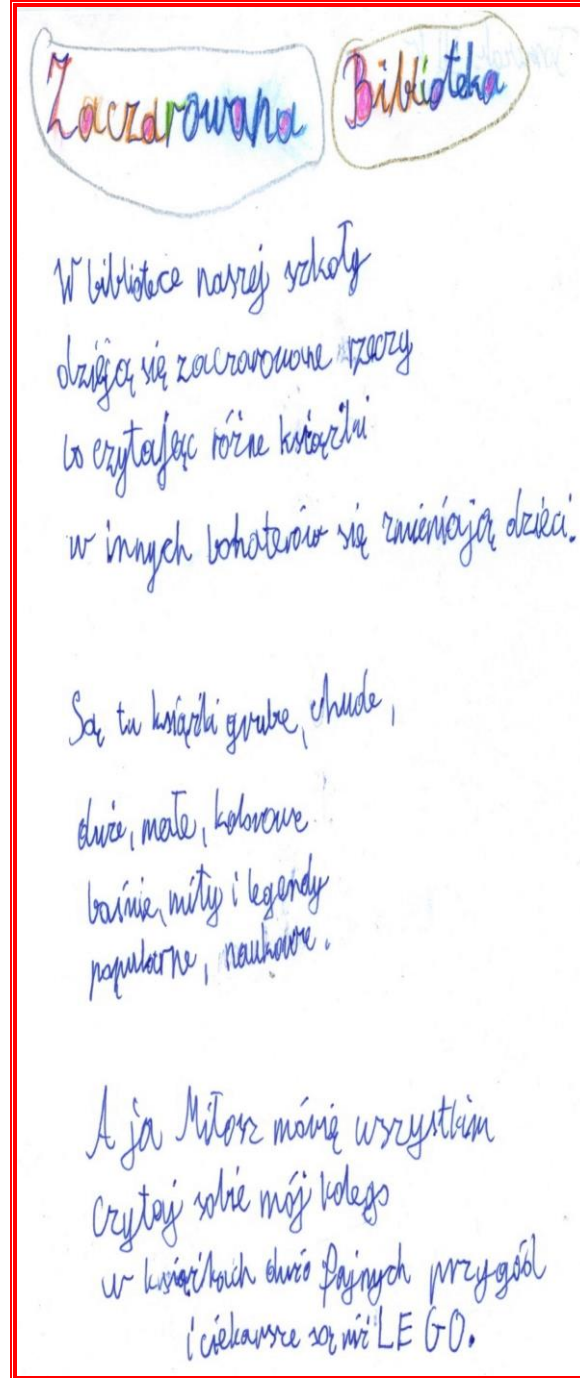 Zaczarowana Biblioteka
W bibliotece naszej szkoły
dzieją się zaczarowane rzeczy
bo czytając różne książki
w innych bohaterów się zmieniają dzieci.
Są tu książki grube, chude,
duże, małe, kolorowe
baśnie, mity i legendy
popularne, naukowe.
A ja Miłosz mówię wszystkim
Czytaj sobie mój kolego
w książkach dużo fajnych przygód
i ciekawsze są niż LEGO.